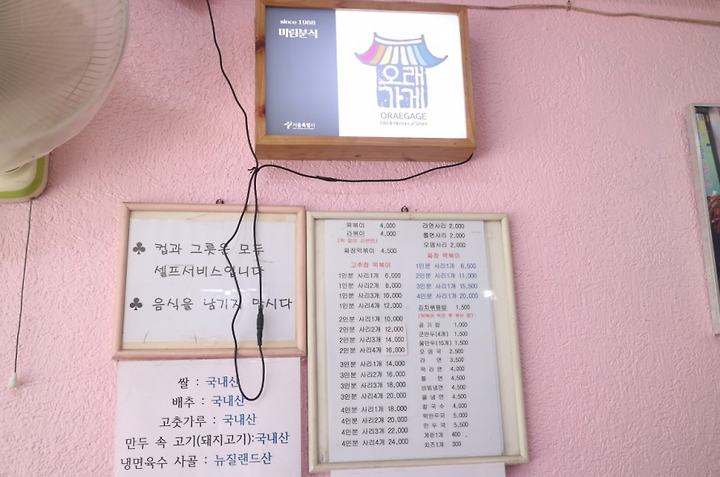 since 1988
미림분식
오래
가게
ORAEGAGE
서울특별시
♣ 컵과 그릇은 모두
셀프서비스입니다
♣ 음식을 남기지 맙시다
쌀 : 국내산
배추 : 국내산
고춧가루 : 국내산
만두 속 고기(돼지고기):국내산
냉면육수 사골 : 뉴질랜드산
떡볶이 4,000
라볶이 4,000
짜장떡볶이 4,500
고추장 떡볶이
1인분 사리1개 6,000
1인분 사리2개 8,000
1인분 사리3개 10,000
1인분 사리4개 12,000
2인분 사리1개 10,000
2인분 사리2개 12,000
2인분 사리3개 14,000
2인분 사리4개 16,000
3인분 사리1개 14,000
3인분 사리2개 16,000
3인분 사리3개 18,000
3인분 사리4개 20,000
4인분 사리1개 18,000
4인분 사리2개 20,000
4인분 사리3개 22,000
4인분 사리4개 24,000
라면사리 2,000
쫄면사리 2,000
오뎅사리 2,000
짜장 떡볶이
1인분 사리1개 6,500
2인분 사리2개 11,000
3인분 사리3개 15,500
4인분 사리4개 20,000
김치볶음밥 1,500
공기밥 1,000
군만두(4개) 1,500
물만두(10개) 1,500
오뎅국 2,500
라면 3,500
떡라면 4,000
쫄면 4,500
비빔냉면 4,500
물냉면 4,500
칼국수 4,000
떡만두국 5,000
만두국 5,000
계란1개 400
치즈1개 300